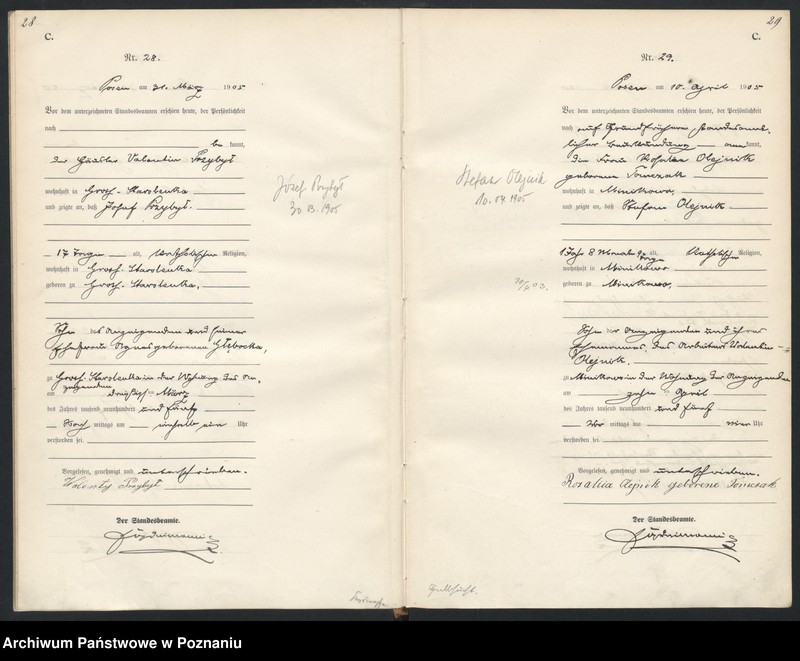 28
C.
Nr. 28.
Posen am 31. März 1905
Vor dem unterzeichneten Standesbeamten erschien heute, der Persönlichkeit
nach
be kannt,
der Häusler Valentin Przybył
wohnhaft in Groß-Starolenka
und zeigte an, daß Josef Przybył
17 Tage alt, katholischer Religion,
wohnhaft in Groß-Starolenka
geboren zu Groß-Starolenka,
Sohn des Anzeigenden und seiner
Ehefrau Agnes geborenen Głębocka,
zu Groß-Starolenka in der Wohnung des An-
zeigenden
am dreißigsten März
des Jahres tausend neunhundert und fünf
Nach mittags um Uhr
verstorben sei.
Vorgelesen, genehmigt und unterschrieben.
Walenty Przybył
Der Standesbeamte.
Józef Przybył
30.03.1905
29
C.
Nr. 29.
Posen am 10. April 1905
Vor dem unterzeichneten Standesbeamten erschien heute, der Persönlichkeit
nach auf Grund früherer standesamt-
licher Beurkundung anerkannt,
die Frau Rosalie Olejnik
geborene Tomczak
wohnhaft in Minikowo,
und zeigte an, daß Stefan Olejnik
1 Jahr 8 Monate 9 Tage alt, katholischer Religion,
wohnhaft in Minikowo
geboren zu Minikowo,
Sohn der Anzeigenden und ihres
Ehemannes, des Arbeiters Valentin
Olejnik.
zu Minikowo in der Wohnung der Anzeigenden
am zehnten April
des Jahres tausend neunhundert und fünf
Vor mittags um vier Uhr
verstorben sei.
Vorgelesen, genehmigt und unterschrieben.
Rozalia Olejnik geborene Tomczak
Der Standesbeamte.
Stefan Olejnik
10.04.1905
Archiwum Państwowe w Poznaniu